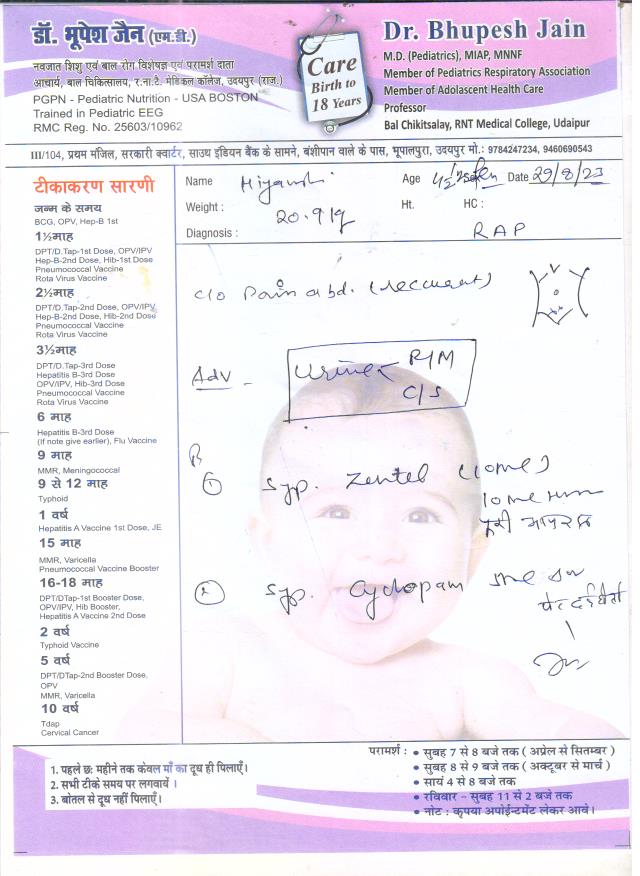 डॉ. भूपेश जैन (एम.डी.)
नवजात शिशु एवं बाल रोग विशेषज्ञ एवं परामर्श दाता
आचार्य, बाल चिकित्सालय, र.ना.टै. मेडिकल कॉलेज, उदयपुर (राज.)
PGPN - Pediatric Nutrition - USA BOSTON
Trained in Pediatric EEG
RMC Reg. No. 25603/10962
Care
Birth to
18 Years
Dr. Bhupesh Jain
M.D. (Pediatrics), MIAP, MNNF
Member of Pediatrics Respiratory Association
Member of Adolascent Health Care
Professor
Bal Chikitsalay, RNT Medical College, Udaipur
III/104, प्रथम मंजिल, सरकारी क्वार्टर, साउथ इंडियन बैंक के सामने, बंशीपान वाले के पास, भूपालपुरा, उदयपुर मो.: 9784247234, 9460690543
टीकाकरण सारणी
जन्म के समय
BCG, OPV, Hep-B 1st
1½माह
DPT/D.Tap-1st Dose, OPV/IPV
Hep-B-2nd Dose, Hib-1st Dose
Pneumococcal Vaccine
Rota Virus Vaccine
2½माह
DPT/D.Tap-2nd Dose, OPV/IPV
Hep-B-2nd Dose, Hib-2nd Dose
Pneumococcal Vaccine
Rota Virus Vaccine
3½माह
DPT/D.Tap-3rd Dose
Hepatitis B-3rd Dose
OPV/IPV, Hib-3rd Dose
Pneumococcal Vaccine
Rota Virus Vaccine
6 माह
Hepatitis B-3rd Dose
(If note give earlier), Flu Vaccine
9 माह
MMR, Meningococcal
9 से 12 माह
Typhoid
1 वर्ष
Hepatitis A Vaccine 1st Dose, JE
15 माह
MMR, Varicella
Pneumococcal Vaccine Booster
16-18 माह
DPT/DTap-1st Booster Dose,
OPV/IPV, Hib Booster,
Hepatitis A Vaccine 2nd Dose
2 वर्ष
Typhoid Vaccine
5 वर्ष
DPT/DTap-2nd Booster Dose,
OPV
MMR, Varicella
10 वर्ष
Tdap
Cervical Cancer
Name Age Date 29/8/23
Weight : 20.9 kg Ht. HC :
Diagnosis : RAP
c/o Pain abd. (recurrent)
Adv - Urine R/M
C/S
Rx
1 Syp. Zentel (10ml)
2 Syp. Cyclopam
1. पहले छः महीने तक केवल माँ का दूध ही पिलाएँ।
2. सभी टीके समय पर लगवायें ।
3. बोतल से दूध नहीं पिलाएँ।
परामर्श : • सुबह 7 से 8 बजे तक ( अप्रेल से सितम्बर )
• सुबह 8 से 9 बजे तक ( अक्टूबर से मार्च )
• सायं 4 से 8 बजे तक
• रविवार – सुबह 11 से 2 बजे तक
• नोट : कृपया अपोईन्टमेंट लेकर आवे।